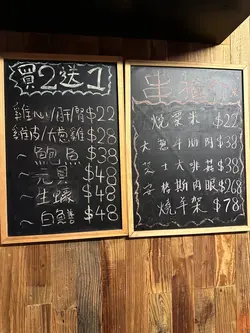 買2送1
雞心/肝/腎$22
雞皮/大蔥雞$28
~鮑魚$38
~元貝$48
~生蠔$48
白鱔$48
燒粟米$22
大蔥牛心肉$38
芝士大啡菇$38
安格斯肉眼$268
燒羊架$78